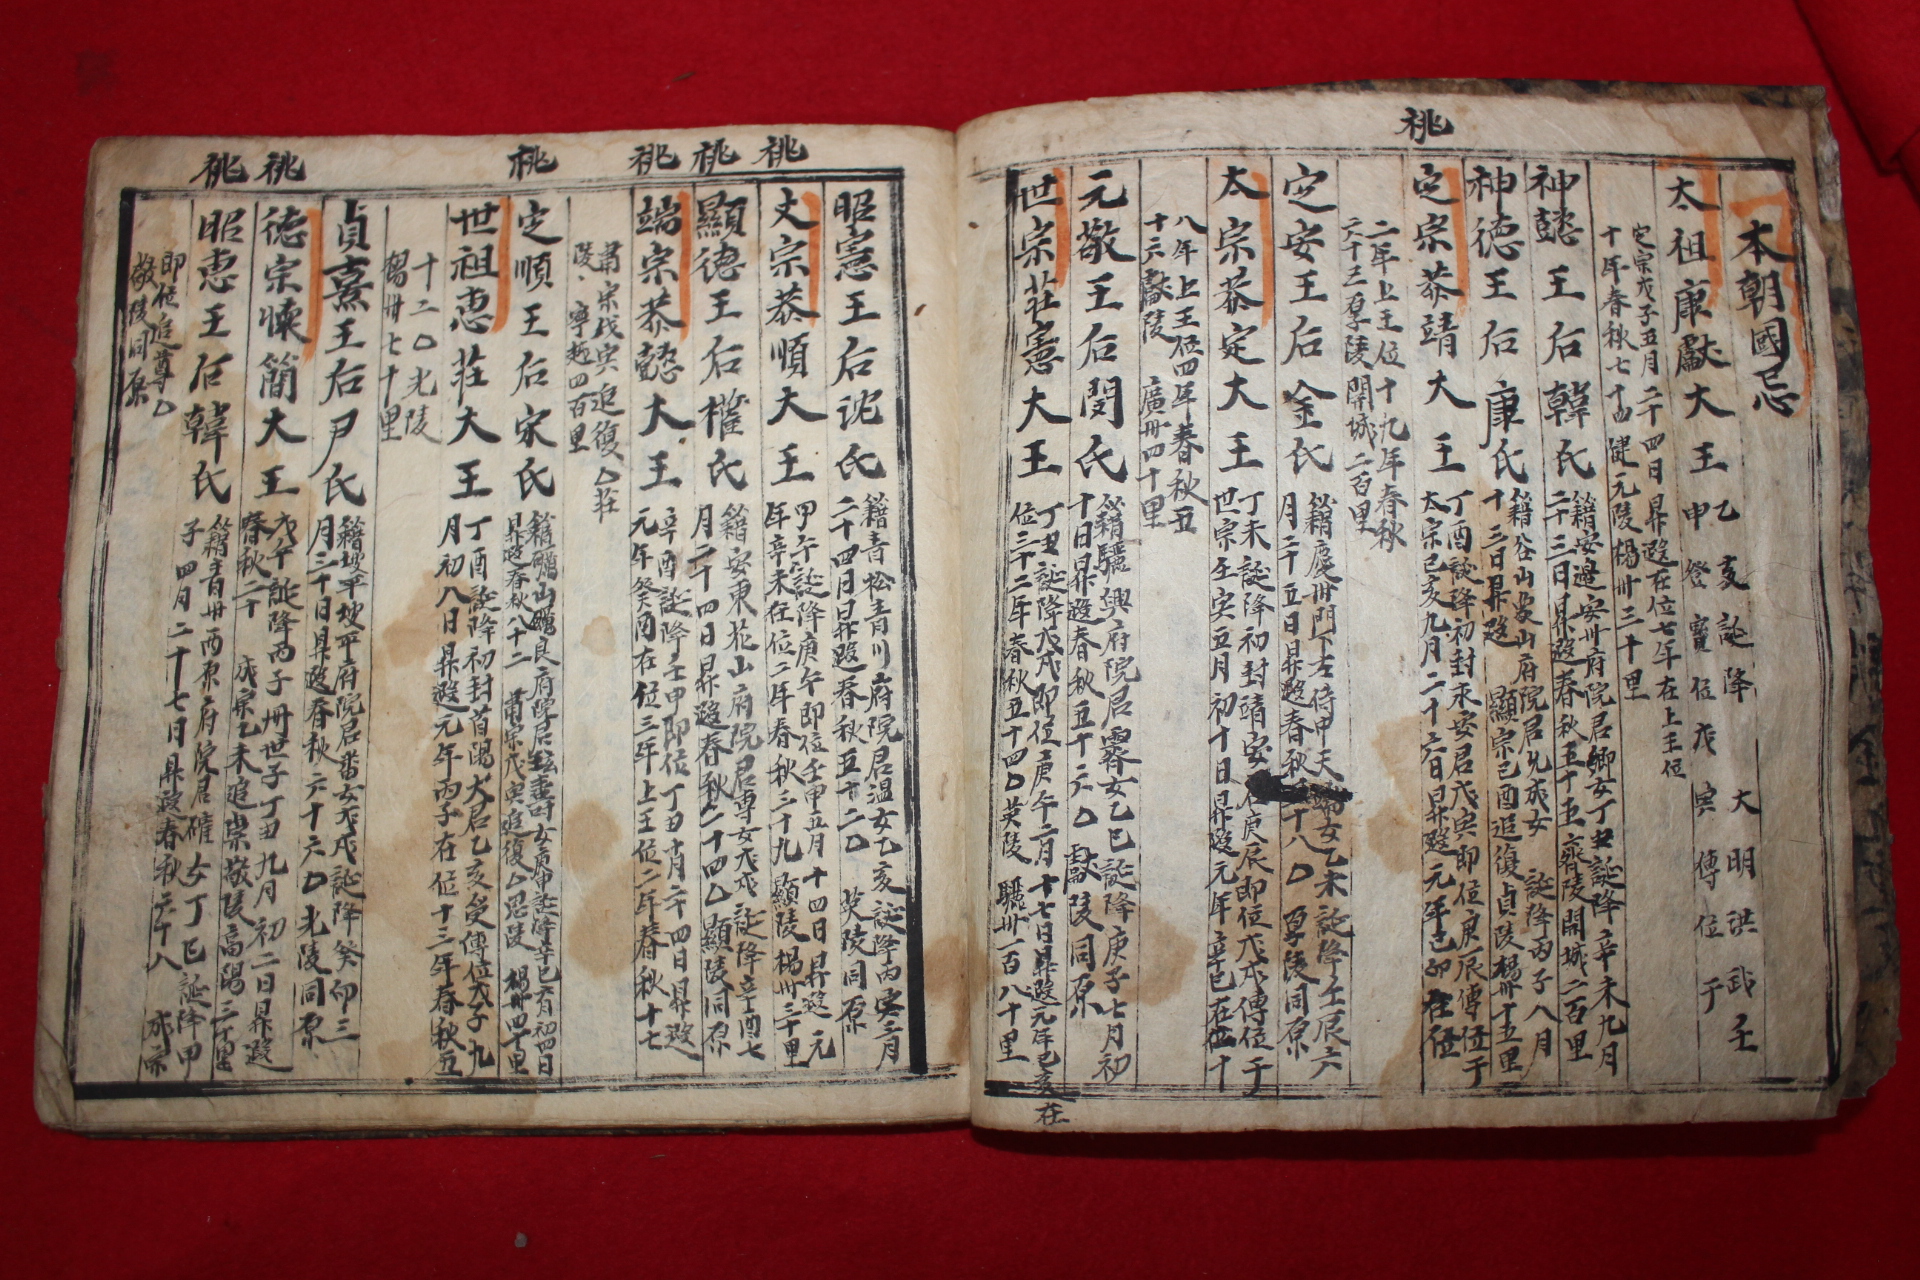 本朝國忌
太祖康獻大王 乙亥誕降 大明洪武壬
申登寶位戊寅傳位于
定宗戊子五月二十四日昇遐在位七年在上王位
十年春秋七十四 健元陵楊州三十里
神懿王后韓氏 籍安邊安川府院君卿女丁丑誕降辛未九月
二十三日昇遐春秋五十五 齊陵開城二百里
神德王后康氏 籍谷山象山府院君允成女 誕降丙子八月
十三日昇遐 顯宗己酉追復貞陵楊州十五里
祧
定宗恭靖大王 丁酉誕降初封永安君戊寅即位庚辰傳位于
太宗己亥九月二十六日昇遐元年己卯在位
二年上王位十九年春秋
六十三厚陵開城二百里
定安王后金氏 籍慶州門下左侍中天瑞女乙未誕降壬辰六
月二十五日昇遐春秋 十八○厚陵同原
太宗恭定大王 丁未誕降初封靖安君庚辰即位戊戌傳位于
世宗壬寅五月初十日昇遐元年辛巳在位十
八年上王位四年春秋五
十六獻陵 廣州四十里
元敬王后閔氏 籍驪興府院君霽女乙巳誕降庚子七月初
十日昇遐春秋五十六○獻陵同原
世宗莊憲大王 丁丑誕降戊戌即位庚午二月十七日昇遐元年己亥在
位三十二年春秋五十四○英陵 驪州一百八十里
昭憲王后沈氏 籍青松青川府院君溫女乙亥誕降丙寅三月
二十四日昇遐春秋五十二○ 英陵同原
祧
文宗恭順大王 甲午誕降庚午即位壬申五月十四日昇遐元
年辛未在位二年春秋三十九顯陵楊州三十里
祧
顯德王后權氏 籍安東花山府院君專女戊戌誕降辛酉七
月二十四日昇遐春秋二十四○顯陵同原
祧
端宗恭懿大王 辛酉誕降壬申即位丁丑十月二十四日昇遐
元年癸酉在位三年上王位二年春秋十七
肅宗戊寅追復○莊
陵、寧越四百里
祧
定順王后宋氏 籍礪山礪良府院君玹壽女庚申誕降辛巳六月初四日
昇遐春秋八十二 肅宗戊寅追復○思陵 楊州四十里
世祖惠莊大王 丁酉誕降初封首陽大君乙亥受傳位戊子九
月初八日昇遐元年丙子在位十三年春秋五
十二○光陵
楊州七十里
貞熹王后尹氏 籍坡平坡平府院君璠女戊戌誕降癸卯三
月三十日昇遐春秋六十六○光陵同原
祧
德宗懷簡大王 戊午誕降丙子冊世子丁丑九月初二日昇遐
春秋二十 成宗乙未追崇敬陵高陽三十里
祧
昭惠王后韓氏 籍青州西原府院君確女丁巳誕降甲
子四月二十七日昇遐春秋六十八 成宗
即位追尊○
敬陵同原